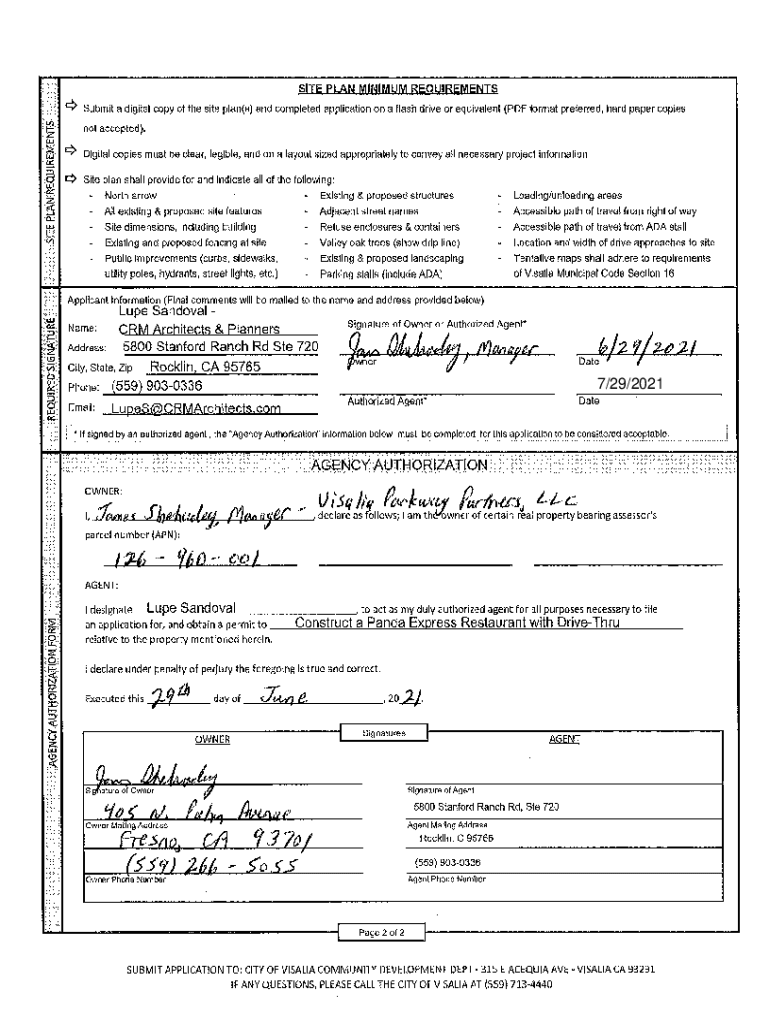 SITE PLAN MINIMUM REQUIREMENTS
SITE PLAN REQUIREMENTS
⇨ Submit a digital copy of the site plan(s) and completed application on a flash drive or equivalent (PDF format preferred, hard paper copies
not accepted).
⇨ Digital copies must be clear, legible, and on a layout sized appropriately to convey all necessary project information
⇨ Site plan shall provide for and indicate all of the following:
- North arrow - Existing & proposed structures - Loading/unloading areas
- All existing & proposed site features - Adjacent street names - Accessible path of travel from right of way
- Site dimensions, including building - Refuse enclosures & containers - Accessible path of travel from ADA stall
- Existing and proposed fencing at site - Valley oak trees (show drip line) - Location and width of drive approaches to site
- Public improvements (curbs, sidewalks, - Existing & proposed landscaping - Tentative maps shall adhere to requirements
utility poles, hydrants, street lights, etc.) - Parking stalls (include ADA) of Visalia Municipal Code Section 16
REQUIRED SIGNATURE
Applicant Information (Final comments will be mailed to the name and address provided below)
Lupe Sandoval -
Name: CRM Architects & Planners Signature of Owner or Authorized Agent*
Address: 5800 Stanford Ranch Rd Ste 720 , Manager 6/29/2021
Owner Date
City, State, Zip Rocklin, CA 95765
Phone: (559) 903-0336 7/29/2021
Authorized Agent* Date
Email: LupeS@CRMArchitects.com
* If signed by an authorized agent, the "Agency Authorization" information below must be completed for this application to be considered acceptable.
AGENCY AUTHORIZATION
AGENCY AUTHORIZATION FORM
OWNER:
I, James Shehadey, Manager - Visalia Parkway Partners, LLC, declare as follows; I am the owner of certain real property bearing assessor's
parcel number (APN):
126 - 960 - 001
AGENT:
I designate Lupe Sandoval , to act as my duly authorized agent for all purposes necessary to file
an application for, and obtain a permit to Construct a Panda Express Restaurant with Drive-Thru
relative to the property mentioned herein.
I declare under penalty of perjury the foregoing is true and correct.
Executed this 29th day of June , 2021.
Signatures
OWNER AGENT
Signature of Owner Signature of Agent
405 N. Palm Avenue 5800 Stanford Ranch Rd, Ste 720
Owner Mailing Address Agent Mailing Address
Fresno, CA 93701 Rocklin, C 95765
(559) 266 - 5055 (559) 903-0336
Owner Phone Number Agent Phone Number
Page 2 of 2
SUBMIT APPLICATION TO: CITY OF VISALIA COMMUNITY DEVELOPMENT DEPT - 315 E ACEQUIA AVE - VISALIA CA 93291
IF ANY QUESTIONS, PLEASE CALL THE CITY OF VISALIA AT (559) 713-4440